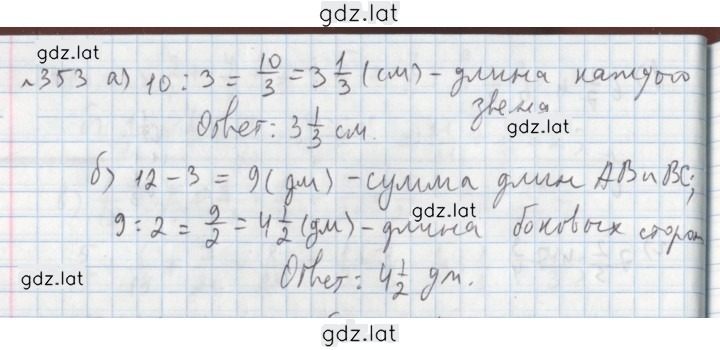 gdz.lat
gdz.lat
№353 а) 10 : 3 = 10/3 = 3 1/3 (см) - длина каждого
звена
Ответ: 3 1/3 см.
gdz.lat
б) 12 - 3 = 9 (дм) - сумма длин AB и BC;
9 : 2 = 9/2 = 4 1/2 (дм) - длина боковых сторон
gdz.lat
Ответ: 4 1/2 дм.
gdz.lat
gdz.lat